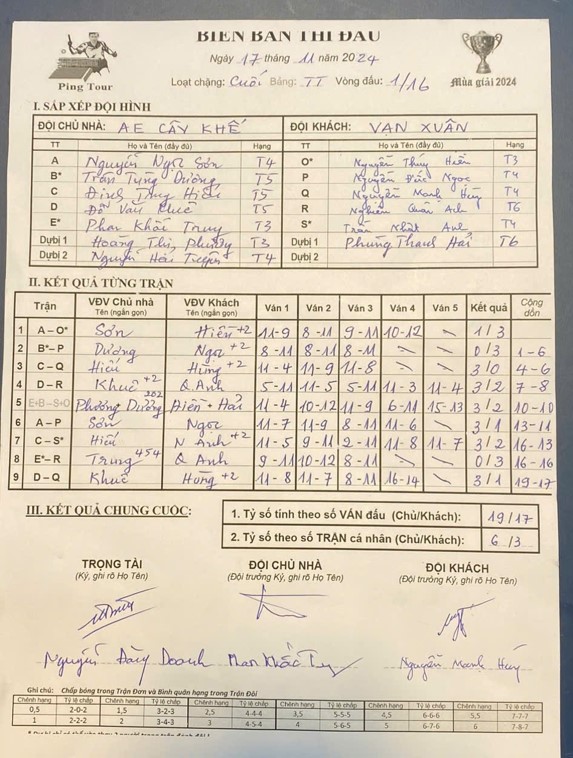 BIÊN BẢN THI ĐẤU
Ngày 17 tháng 11 năm 2024
Ping Tour
Loạt chặng: Cuối Bảng: II Vòng đấu: 1/16
Mùa giải 2024
I. SẮP XẾP ĐỘI HÌNH
ĐỘI CHỦ NHÀ: AE CÂY KHẾ ĐỘI KHÁCH: VẠN XUÂN
TT Họ và Tên (đầy đủ) Hạng TT Họ và Tên (đầy đủ) Hạng
A Nguyễn Ngọc Sơn T4 O* Nguyễn Thúy Hiền T3
B* Trần Tùng Dương T5 P Nguyễn Đức Ngọc T4
C Đinh Thuý Hiếu T5 Q Nguyễn Manh Hùng T4
D Đỗ Văn Khuê T5 R Quân Anh T6
E* Phan Khắc Trung T3 S* Trần Nhật Anh T4
Dự bị 1 Hoàng Thị Phương T3 Dự bị 1 Phùng Thanh Hải T6
Dự bị 2 Nguyễn Hải T4 Dự bị 2
II. KẾT QUẢ TỪNG TRẬN
Trận VĐV Chủ nhà Tên (ngắn gọn) VĐV Khách Tên (ngắn gọn) Ván 1 Ván 2 Ván 3 Ván 4 Ván 5 Kết quả Cộng dồn
1 A – O* Sơn Hiền +2 11-9 8-11 9-11 10-12 \ 1/3
2 B* – P Dương Ngọc +2 8-11 8-11 8-11 \ \ 0/3 1-6
3 C – Q Hiếu Hùng +2 11-4 11-9 11-8 \ \ 3/0 4-6
4 D – R Khuê +2 Q.Anh 5-11 11-5 5-11 11-3 11-4 3/2 7-8
5 E+B – S+O Phương Dương 302 Hiền + Hải 11-4 10-12 11-9 6-11 15-13 3/2 10-10
6 A – P Sơn Ngọc 11-7 11-9 8-11 11-6 \ 3/1 13-11
7 C – S* Hiếu N Anh +2 11-5 9-11 2-11 11-8 11-7 3/2 16-13
8 E* – R Trung 454 Q Anh 9-11 10-12 8-11 \ \ 0/3 16-16
9 D – Q Khuê Hùng +2 11-8 11-7 8-11 16-14 \ 3/1 19-17
III. KẾT QUẢ CHUNG CUỘC:
1. Tỷ số tính theo số VÁN đấu (Chủ/Khách): 19/17
2. Tỷ số theo số TRẬN cá nhân (Chủ/Khách): 6/3
TRỌNG TÀI ĐỘI CHỦ NHÀ ĐỘI KHÁCH
(Ký, ghi rõ Họ Tên) (Đội trưởng Ký, ghi rõ Họ Tên) (Đội trưởng Ký, ghi rõ Họ Tên)
Nguyễn Đăng Doanh Phan Khắc Nguyễn Manh Hùng
Ghi chú: Chấp bóng trong Trận Đơn và Bình quân hạng trong Trận Đôi
Chênh hạng Tỷ lệ chấp Chênh hạng Tỷ lệ chấp Chênh hạng Tỷ lệ chấp Chênh hạng Tỷ lệ chấp Chênh hạng Tỷ lệ chấp Chênh hạng Tỷ lệ chấp
0,5 2-0-2 1,5 3-2-3 2,5 4-4-4 3,5 5-5-5 4,5 6-6-6 5,5 7-7-7
1 2-2-2 2 3-4-3 3 4-5-4 4 5-6-5 5 6-7-6 6 7-8-7